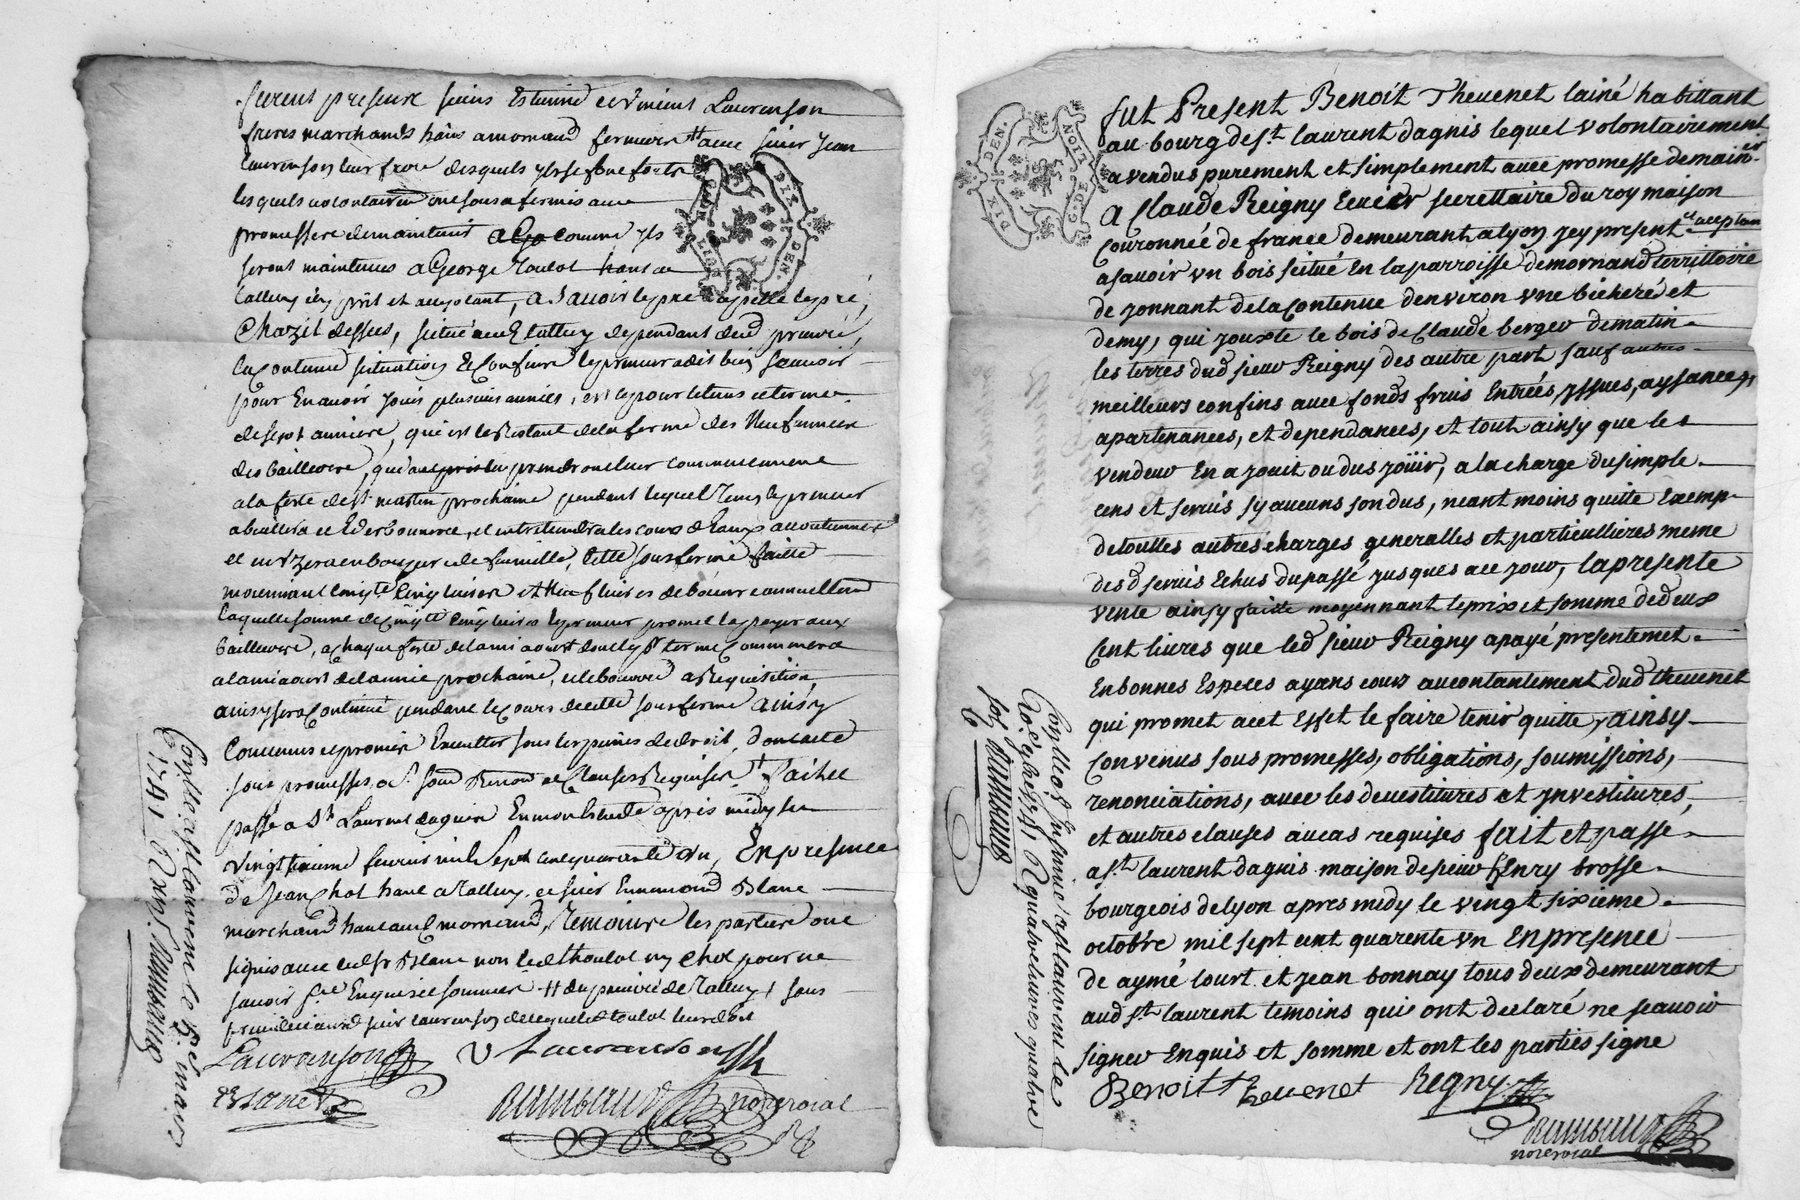 furent presens sieurs Estienne et Vincent Lauranson
freres marchands hâns a mornand fermiers avec sieur Jean
Lauranson leur frere desquels ils se font forts
lesquels volontairem ont sous afermés avec
promesse de maintenir comme yls
seront maintenus a George Toulot hant de
Talluy icy pnt et acceptant, a sçavoir le pré appellé le pré
Chazil dessus, scitué aud Talluy dependant dud prieuré,
la contenue scituation et confins le preneur a dit bien sçavoir
pour en avoir jouis plusieurs années, et ce pour le tems et terme
de sept années, qui est le restant de la ferme des neuf années
des bailleurs, prendront leur commencement
a la feste de st martin prochaine pendant lequel tems le preneur
et entretiendra les cours d'eaux accoutumés
et en usera en bon pere de famille, cette sous ferme faitte
moiennant cinqte cinq livres et livres de beurre annuellem
laquelle somme de cinqte cinq livres le preneur promet la payer aux
bailleurs, a chaque feste de la mi aoust dont le pr terme commencera
a la mi aoust de l'année prochaine, et le beurre a requisition
ainsy sera continué pendant le cours de cette sous ferme ainsy
convenus et promis executter sous les peines de droit, dont acte
sous promesses obl soum renon et clauses requises fait et
passé a St Laurent dagnis en mon etude apres midy le
vingt fevrier mil sept cent quarante un, En presence
de Jean Chol hant a Talluy, et sieur Ennemond Blanc
marchand hant aud mornand, temoins les parties ont
signés avec led sr Blanc non led thoulot ny chol pour ne
savoir fre enquis et sommés # du prieuré de Talluy + sans
Lauranson V Lauranson
Blanc
Raimbaud no.re roial
Conttlé a st laurent le mars
1741
fut Present Benoit Thevenet lainé habittant
au bourg de st. laurent dagnis lequel volontairement
a vendus purement et simplement avec promesse de mainer
A Claude Reigny Ecuier secrettaire du roy maison
Couronnée de france demeurant a lyon jcy present et aceptan
a savoir un bois scitué En la parroisse de mornand territtoire
de jonnant de la Contenue denviron une bicheré et
demy, qui jouxte le bois de Claude berger de matin
les terres dud sieur Reigny des autre part sauf autres
meilleurs confins avec fonds fruis Entrées, yssues, aysances,
apartenances, et dependances, et tout ainsy que le
vendeur En a jouit ou dus joüir, a la charge du simple
cens et servis sy aucuns sont dus, neant moins quitte Exemp
de touttes autres charges generalles et particullieres meme
des d servis Echus du passé jusques a ce jour, la presente
vente ainsy faitte moyennant le prix et somme de deux
Cent livres que led sieur Reigny a payé presentemet.
En bonnes Especes ayans cours au contantement dud thevenet
qui promet a cet Effet le faire tenir quitte, ainsy
convenus sous promesses, obligations, soumissions,
renonciations, avec les devestitures et jnvestitures,
et autres clauses au cas requises fait et passé
a st. laurent dagnis maison de sieur henry brosse
bourgeois de lyon apres midy le vingt sixieme
octobre mil sept cent quarente un En presence
de aymé court et jean bonnay tous deux demeurant
aud st. laurent temoins qui ont declaré ne scavoir
signer Enquis et sommé et ont les parties signe
Benoit Thevenet Regny
Raimbaud
no.re roial
Conttlé et Insinué a st laurent le
1741 R quatre livres quatre
sols Raimbaud
DIX DEN.
G. DE
DIX DEN.